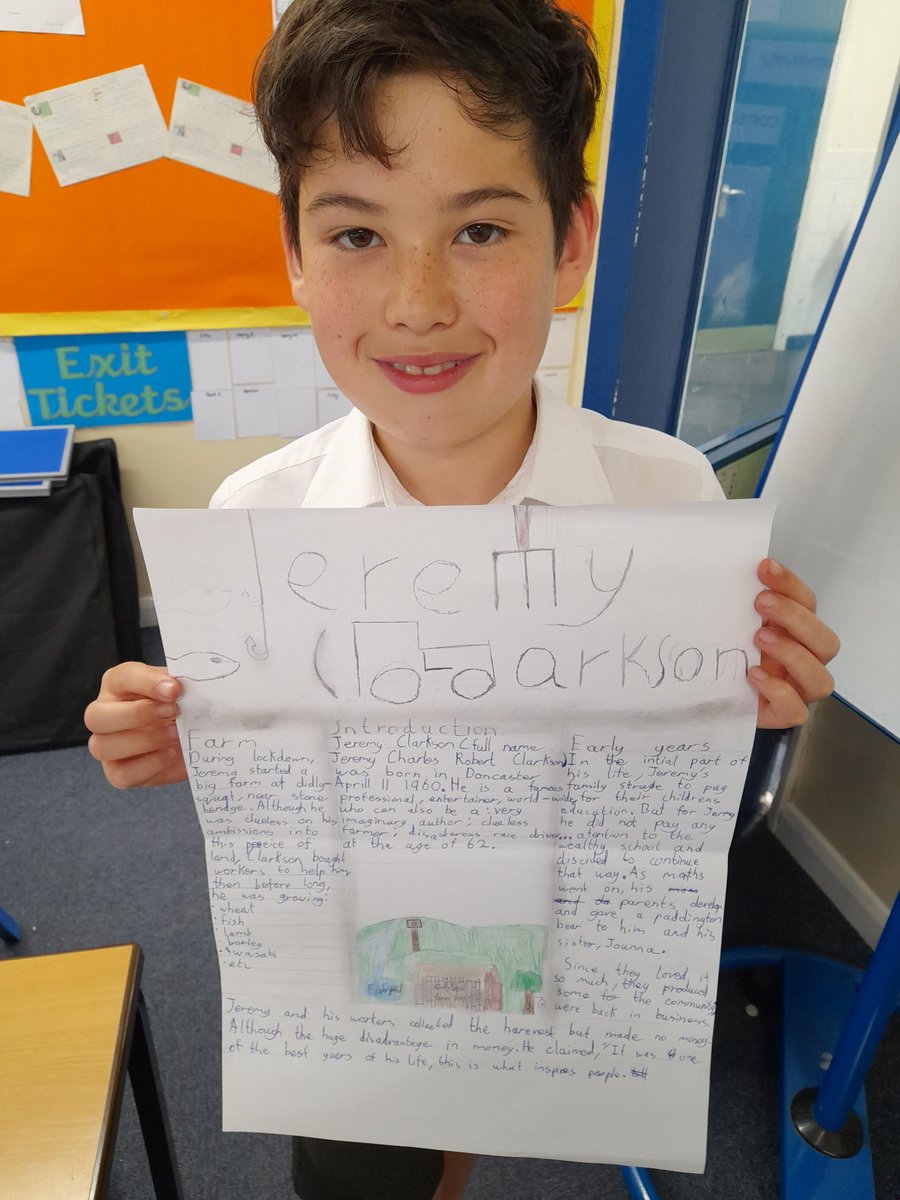 Exit
Tickets
Jeremy
Clarkson
Farm
During lockdown,
Jeremy started a
big farm at didly-
squat, near stone
hendge. Although he
was clueless on his
ambissions into
this peeice of
land, Clarkson bought
workers to help him
then before long,
he was growing:
· wheat
· fish
· lamb
· barley
· wasabi
· etc
Introduction
Jeremy Clarkson (full name
Jeremy Charles Robert Clarkson)
was born in Doncaster
Aprill 11 1960. He is a famous
professional, entertainer, world-wide,
who can also be a: very
imaginary author; clueless
farmer; disasterous race driver...
at the age of 62.
Fish pond
Early years
In the intial part of
his life, Jeremy's
family strugle to pay
for their childrens
education. But for Jermy
he did not pay any
atention to the
wealthy school and
discided to continue
that way. As months
went on, his
parents,
and gave a paddington
bear to him and his
sister, Joanna.
Since they loved it
so much, they produced
some for the community
were back in business.
Jeremy and his workers collected the harevest but made no money.
Although the huge disadrantage in money. He claimed, "It was one
of the best years of his life, this is what inspires people.